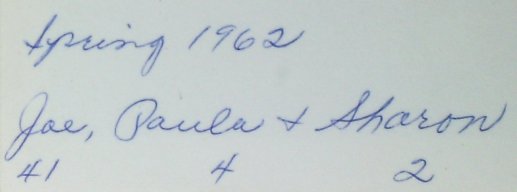 Spring 1962
Joe, Paula + Sharon
41 4 2